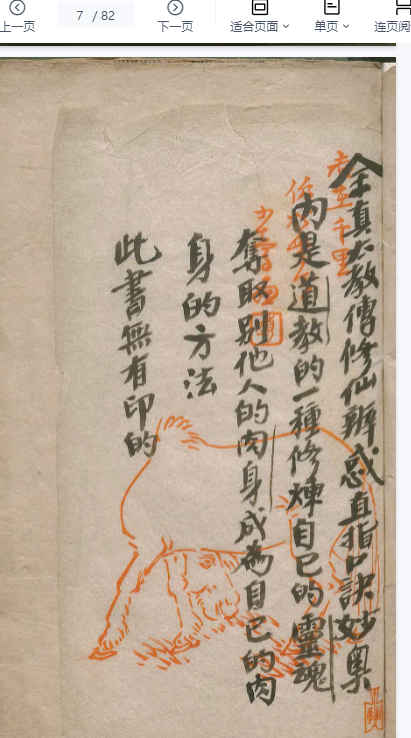 上一页
7 / 82
下一页
适合页面
单页
连页阅
全真大教傳修仙辨惑直指口訣妙奥
内是道教的一種修煉自己的靈魂
奪取别他人的肉身成為自己的肉
身的方法
此書無有印的